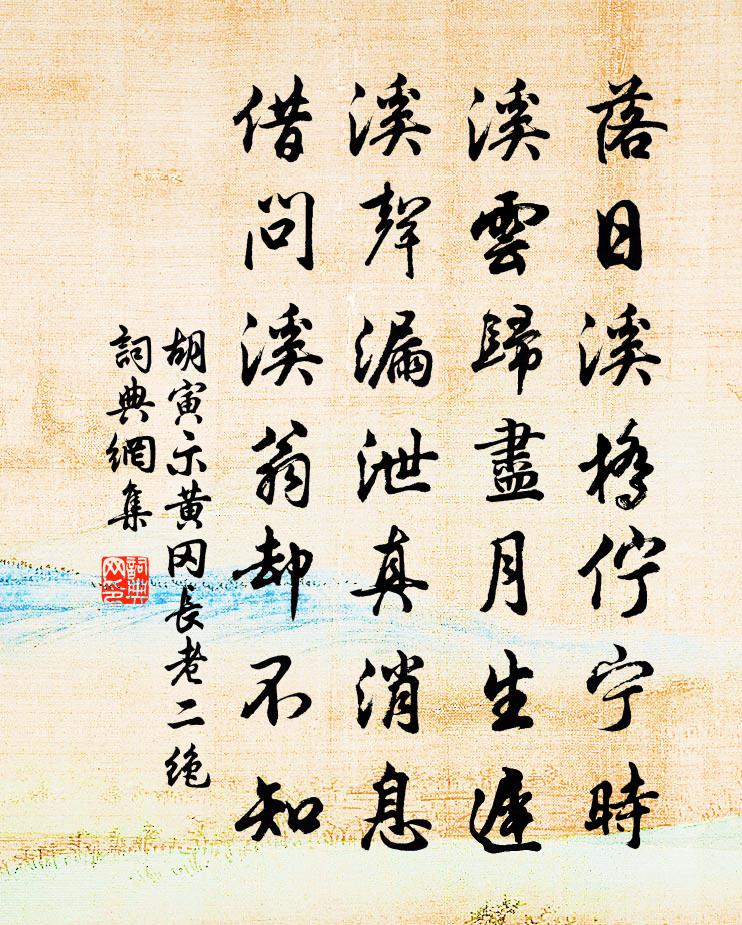 落日溪橋佇宁時
溪雲歸盡月生遲
溪聲漏泄真消息
借問溪翁却不知
胡寅示黄冈長老二绝
詞典網集
詞典網